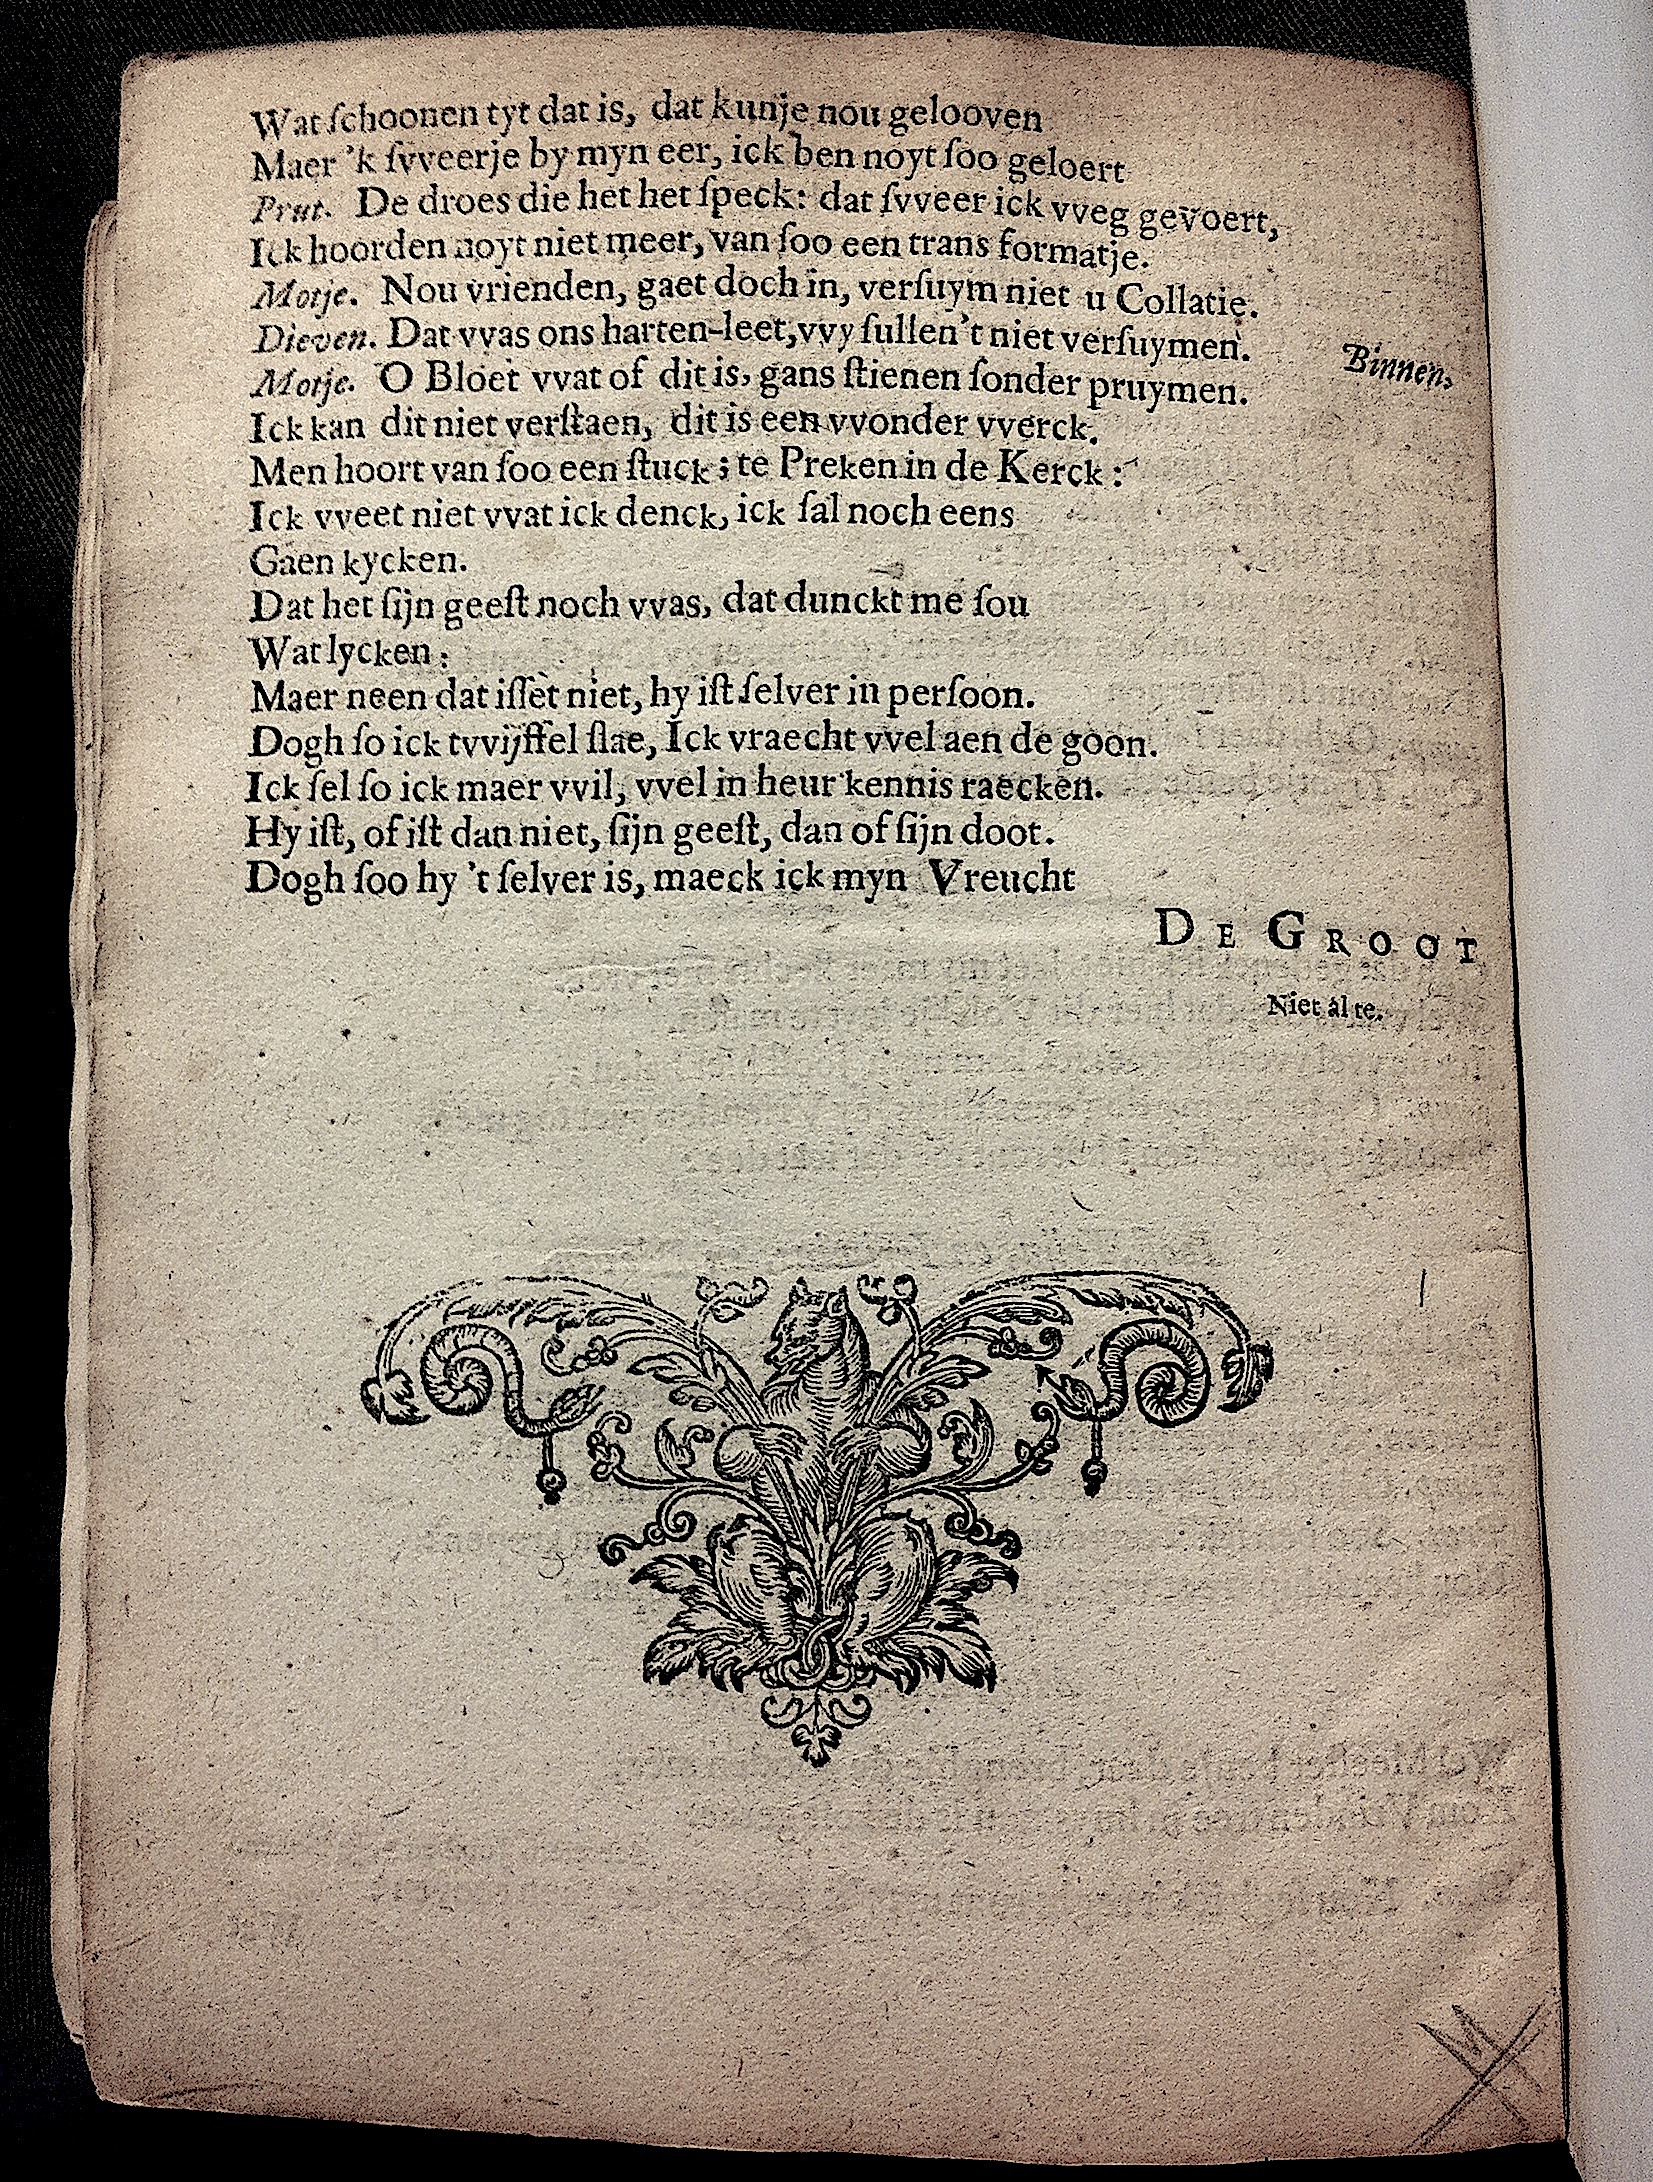 Wat ſchoonen tyt dat is, dat kunje nou gelooven
Maer 'k ſvveerje by myn eer, ick ben noyt ſoo geloert
Prut. De droes die het het ſpeck: dat ſvveer ick vveg gevoert,
Ick hoorden noyt niet meer, van ſoo een trans formatje.
Motje. Nou vrienden, gaet doch in, verſuym niet u Collatie.
Dieven. Dat vvas ons harten-leet, vvy ſullen't niet verſuymen. Binnen.
Motje. O Bloet vvat of dit is, gans ſtienen ſonder pruymen.
Ick kan dit niet verſtaen, dit is een vvonder vverck.
Men hoort van ſoo een ſtuck; te Preken in de Kerck:
Ick vveet niet vvat ick denck, ick ſal noch eens
Gaen kycken.
Dat het ſijn geeſt noch vvas, dat dunckt me ſou
Wat lycken:
Maer neen dat iſſet niet, hy iſt ſelver in perſoon.
Dogh ſo ick tvvijffel ſlae, Ick vraecht vvel aen de goon.
Ick ſel ſo ick maer vvil, vvel in heur kennis raecken.
Hy iſt, of iſt dan niet, ſijn geeſt, dan of ſijn doot.
Dogh ſoo hy 't ſelver is, maeck ick myn Vreucht
DE GROOT
Niet al te.